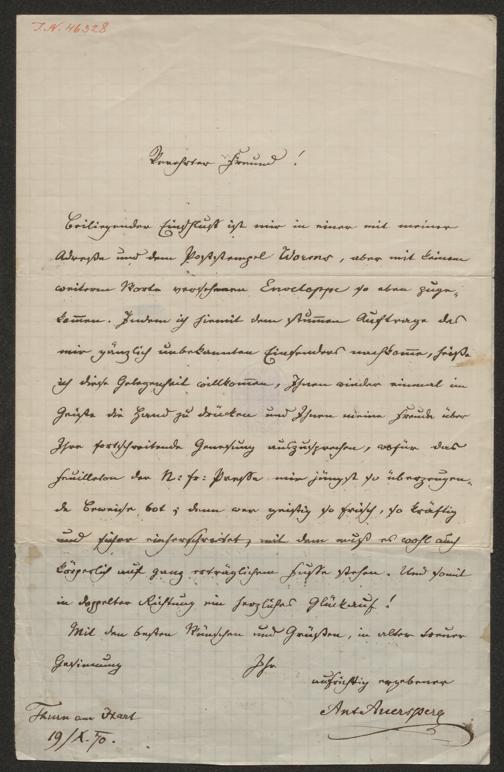 I.N. 46328
Verehrter Freund!
Beiliegender Einschluß ist mir in einer mit meiner
Adreße und dem Poststempel Worms, aber mit keinem
weiteren Worte versehenen Enveloppe so eben zuge-
kommen. Indem ich hiemit dem stummen Auftrage des
mir gänzlich unbekannten Einsenders nachkomme, heiße
ich diese Gelegenheit willkommen, Ihnen wieder einmal im
Geiste die Hand zu drücken und Ihnen meine Freude über
Ihre fortschreitende Genesung auszusprechen, wofür das
Feuilleton der N: fr: Presse mir jüngst so überzeugen-
de Beweise bot; denn wer geistig so frisch, so kräftig
und sicher einherschreitet, mit dem muß es wohl auch
körperlich auf ganz erträglichem Fuße stehen. Und somit
in doppelter Richtung ein herzliches Glückauf!
Mit den besten Wünschen und Grüßen, in alter treuer
Gesinnung Ihr
aufrichtig ergebener
Ant Auersperg
Thurn am Hart
19/X. 70.